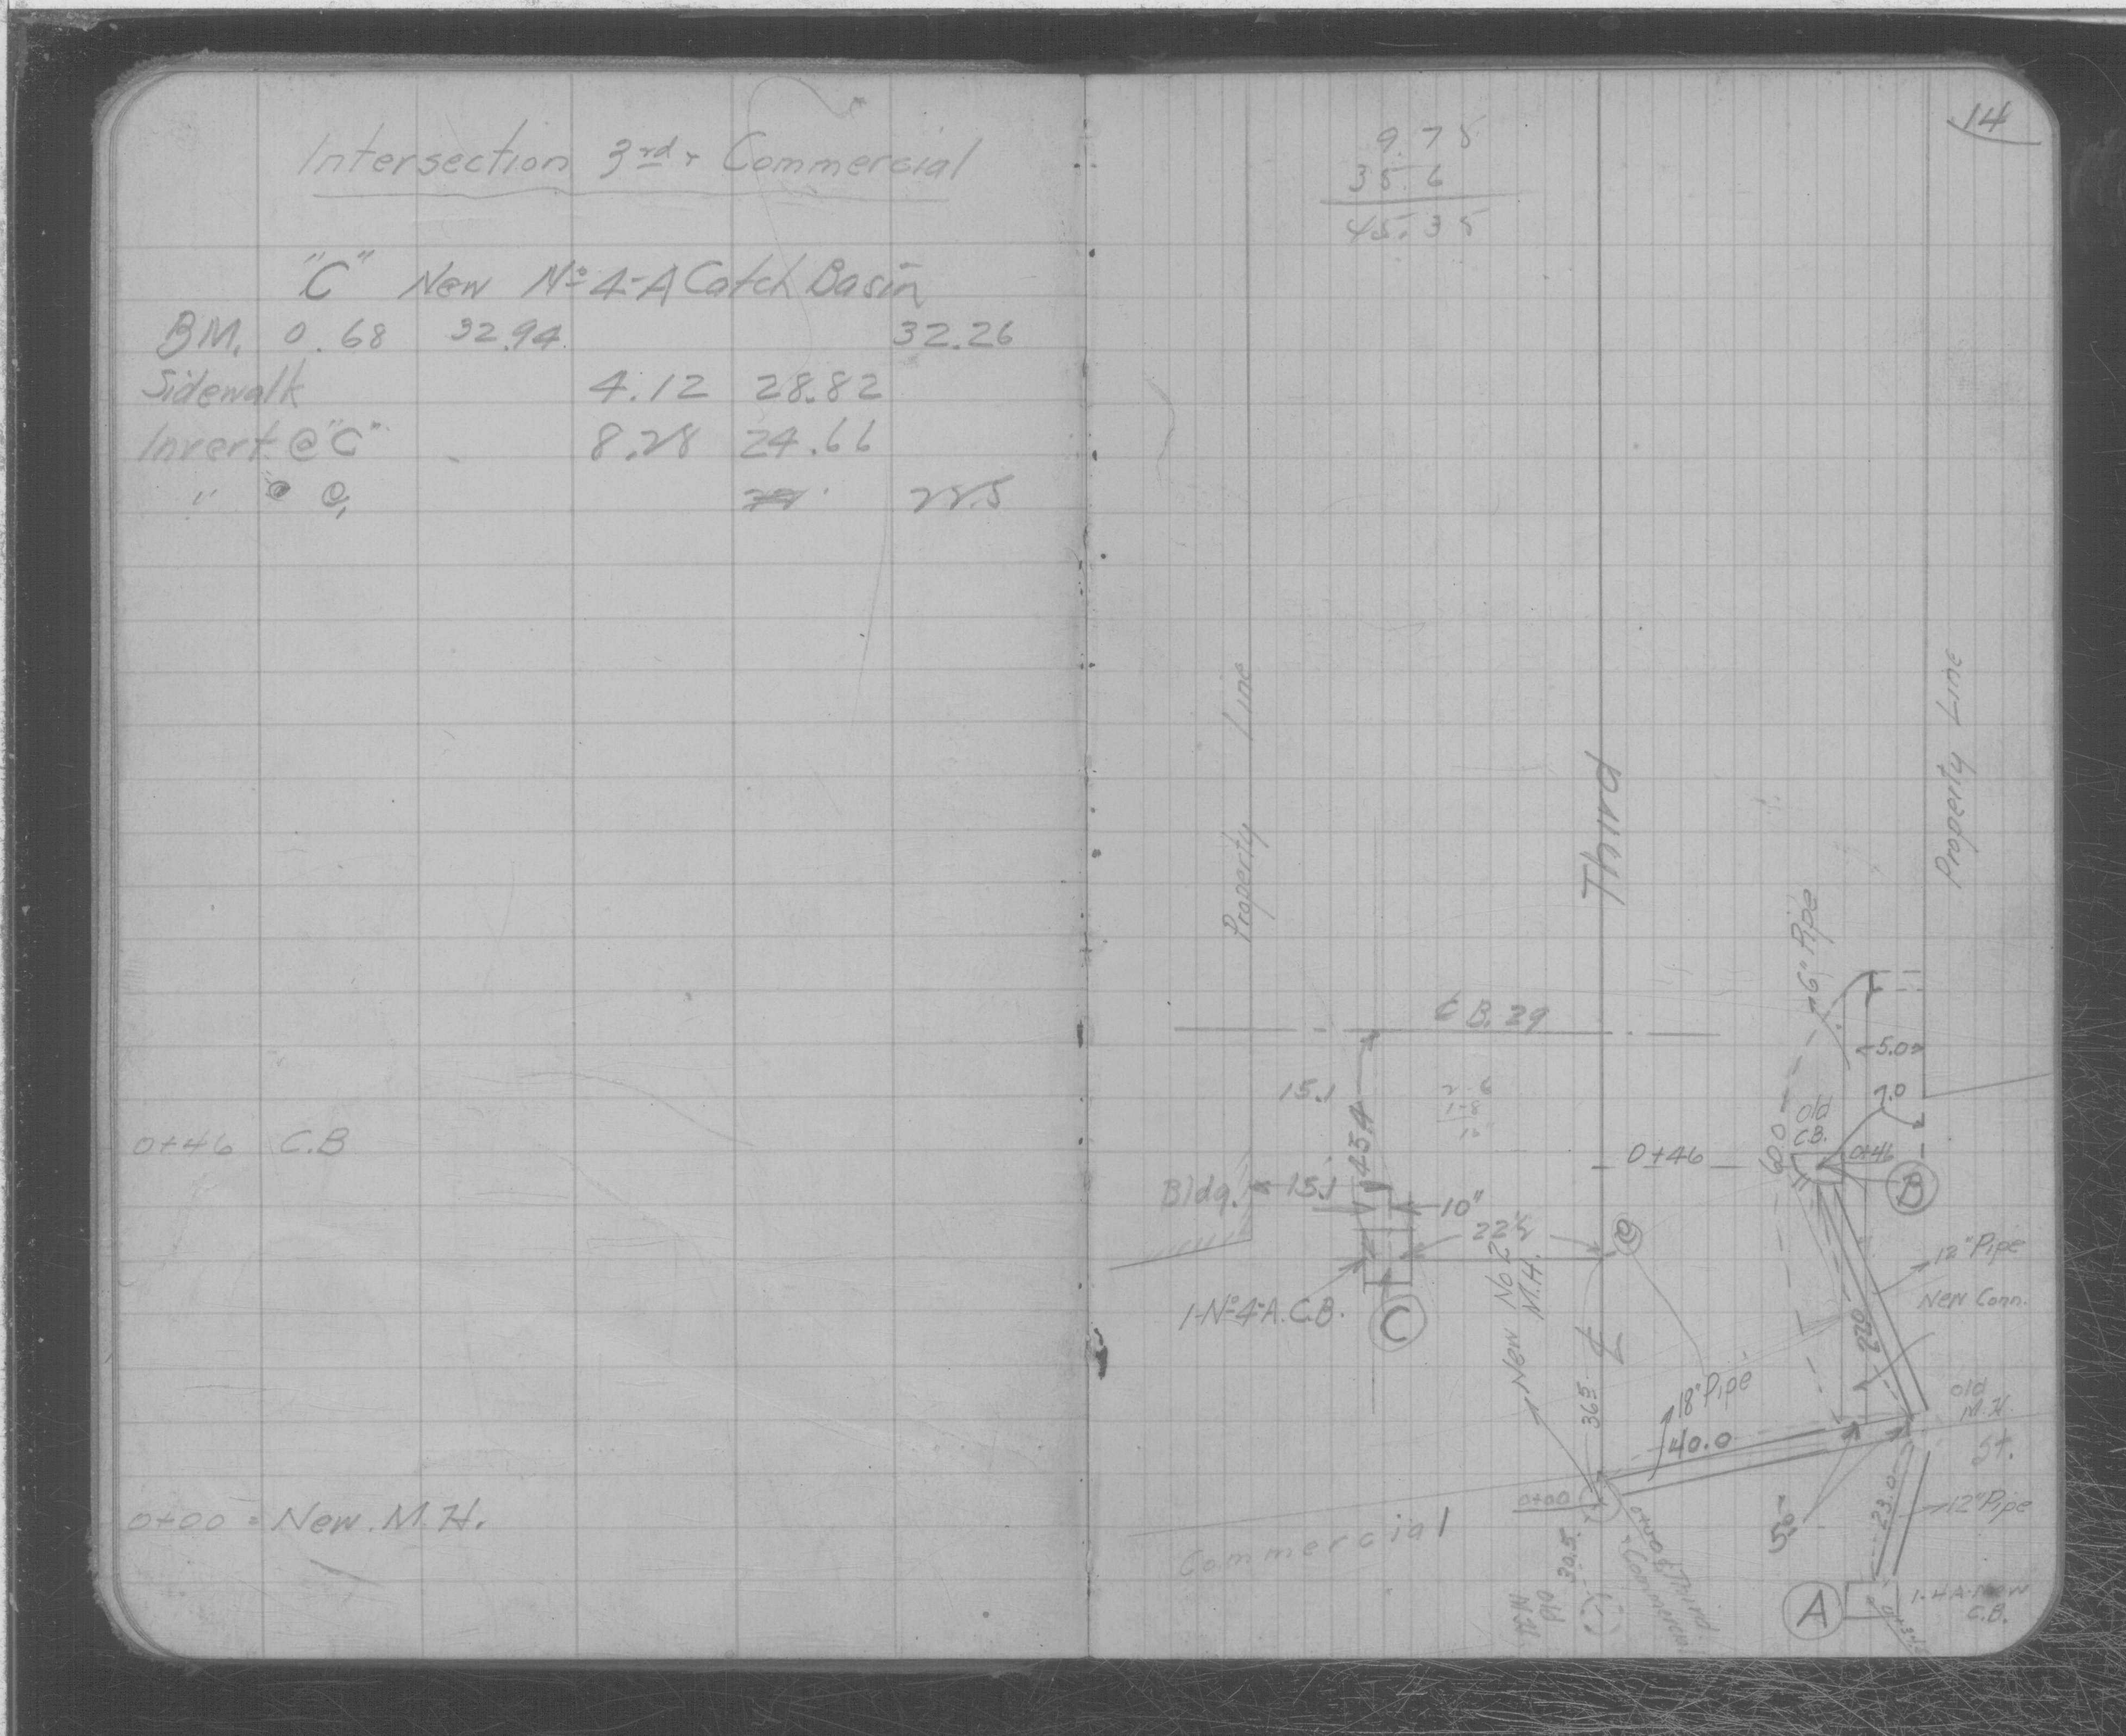 Intersection 3rd + Commercial
"C" New No 4-A Catch Basin
BM. 0.68 32.94 32.26
Sidewalk 4.12 28.82
Invert @ "C" 8.28 24.66
" @ C, 22.5
0+46 C.B
0+00 = New M.H.
14
9.75
35.6
45.35
Property Line
Third
Property Line
6" Pipe
C B. 29
5.0
15.1
45.4
2 6
1-8
7.0
Old
C.B.
60.0
0+46
0+46
B
Bldg. 15.1
10"
22½
C
12" Pipe
New Conn.
1-No 4-A. C.B.
C
New No 2
M.H.
36.5
18" Pipe
40.0
Old
M.H.
St.
0+00
Commercial
30.5
Old
M.H.
5.0
23.0
12" Pipe
A
1-4A-New
C.B.